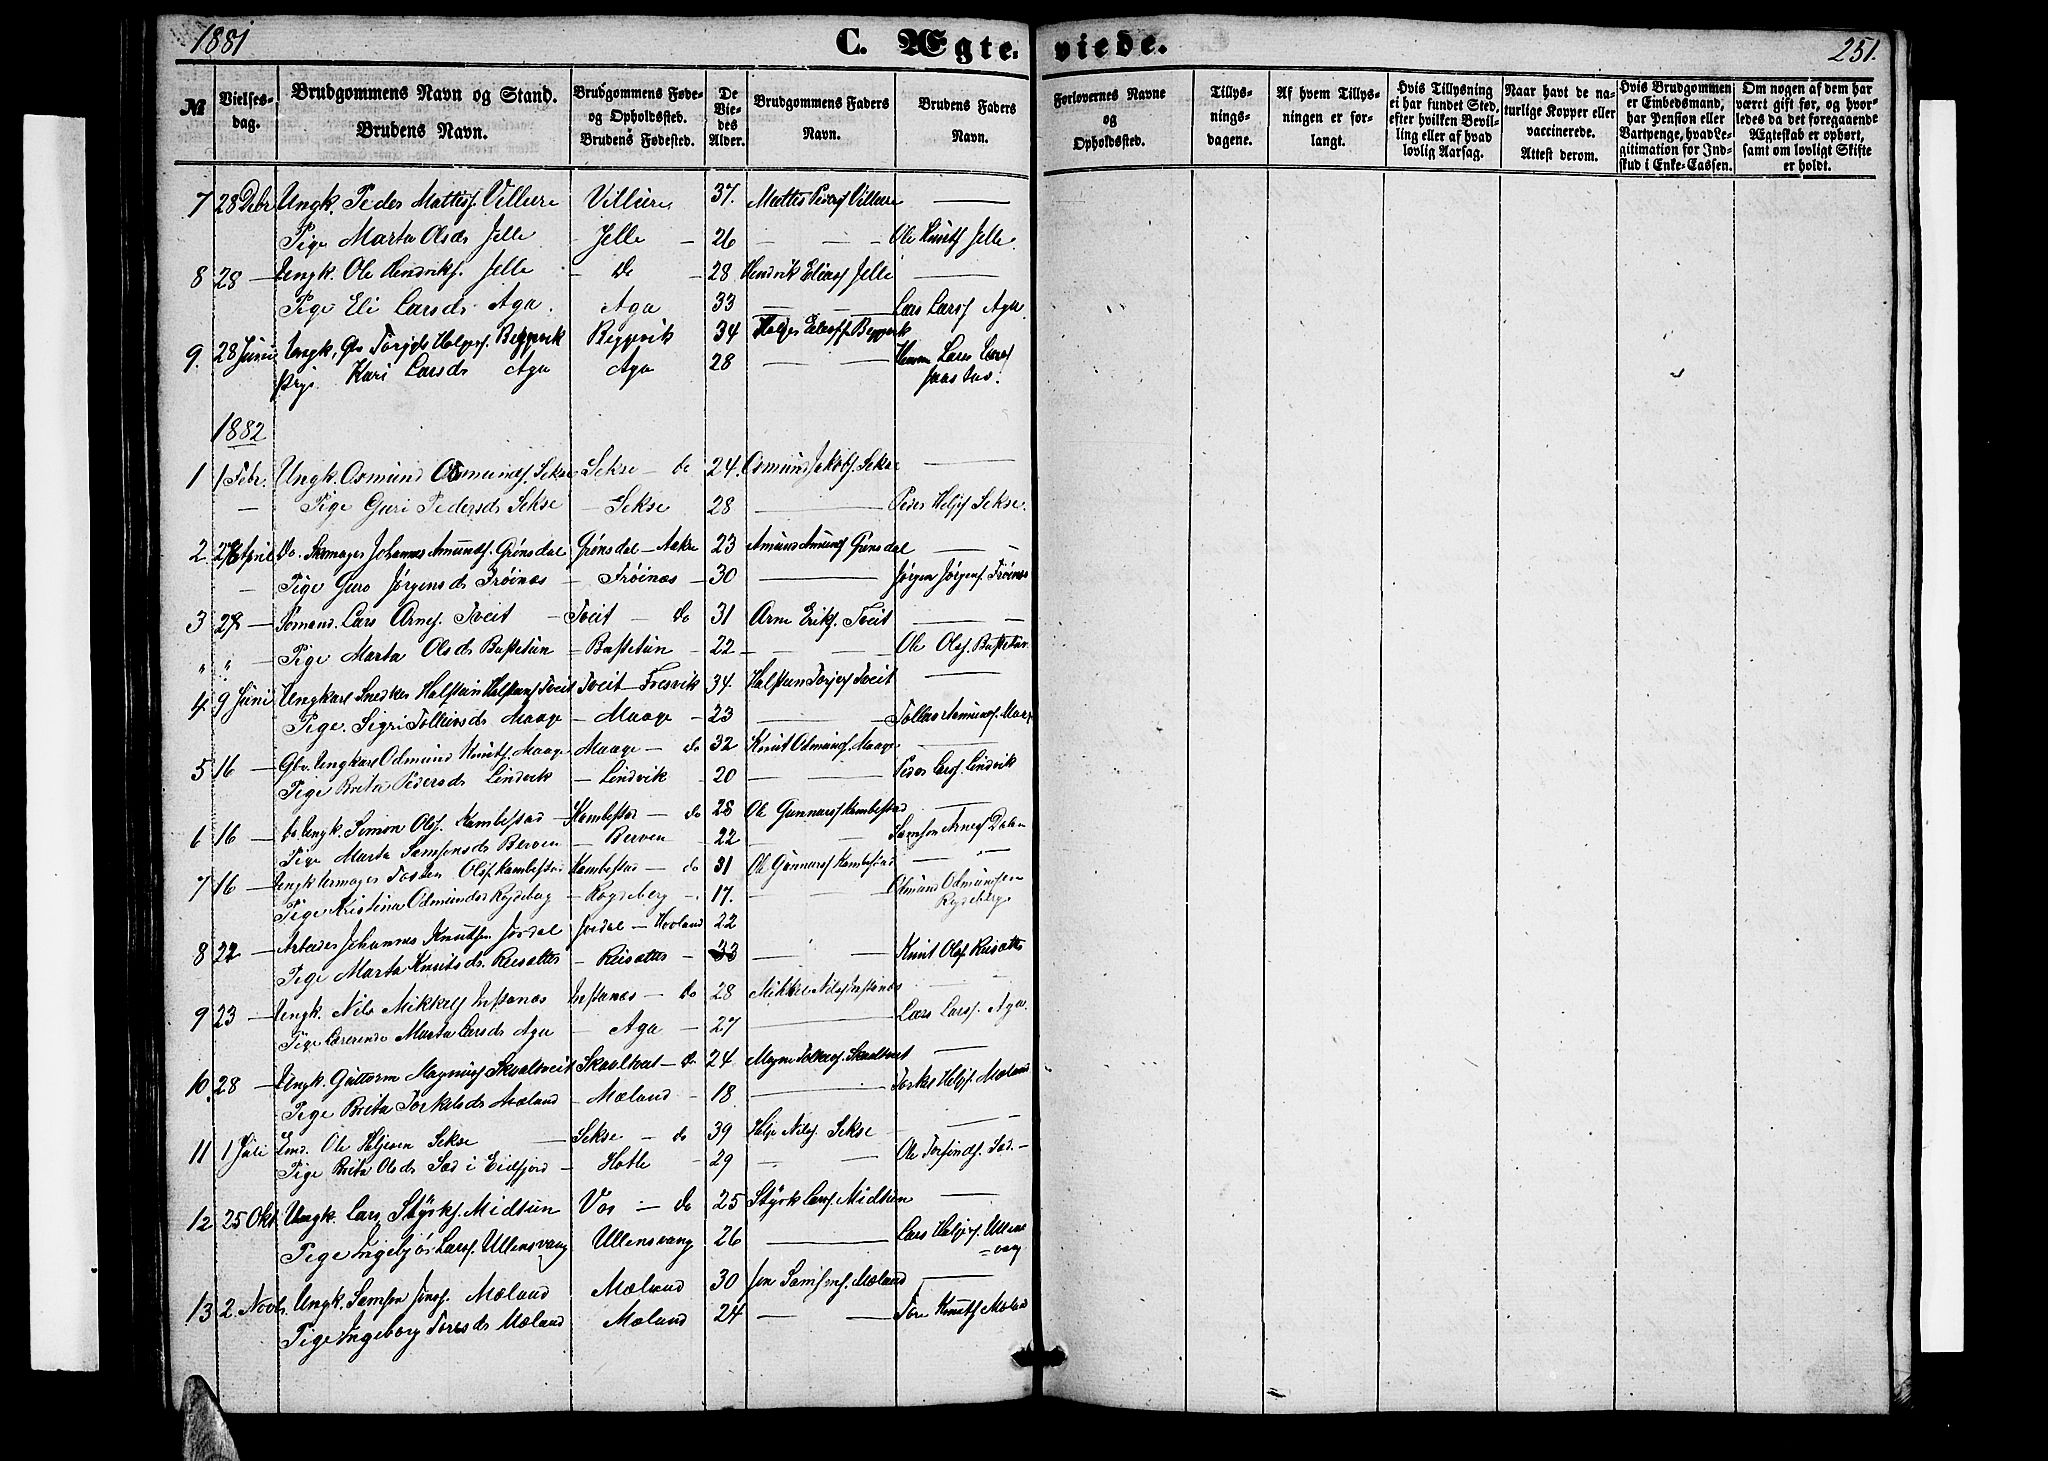 1881 C. Ægte. viede. 251.
№ Vielses-dag. Brudgommens Navn og Stand. Brudens Navn. Brudgommens Føde- og Opholdssted. Brudens Fødested. De Viedes Alder. Brudgommens Faders Navn. Brudens Faders Navn. Forlovernes Navne og Opholdssted. Tillysningsdagene. Af hvem Tillysningen er forlangt. Hvis Tillysning ei har fundet Sted, efter hvilken Bevilling eller af hvad lovlig Aarsag. Naar havt de naturlige Kopper eller vaccinerede. Attest derom. Hvis Brudgommen er Embedsmand, har Pension eller Vartpenge, hvad Legitimation for Indskud i Enke-Cassen. Om nogen af dem har været gift før, og hvorledes da det foregaaende Ægteskab er ophørt, samt om lovligt Skifte er holdt.
7 28 Debr Ungk. Peder Mattisf. Villure Villure 37. Mattis Peders Villure —
Pige Marta Olsdr Jelle - Jelle - 26 — — Ole Knutsf Jelle.
8 28 — Ungk. Ole Hendriksf. Jelle - Do - 28 Hendrik Eliasf Jelle —
Pige Eli Larsdr Aga. Aga 33 — — Lars Larsf Aga.
9. 28 Juni Ungk. Gbr Helgesf. 34
Kari Larsdr Aga Aga 28 — — Lars Larsf
1882
1 1 Febr. Ungk. Osmund Osmundsf. Sekse Sekse — do 24. Osmund Jakobsf. Sekse —
— Pige Guri Pedersdr Sekse — Sekse 28 — Peder Helgesf Sekse.
2. 28 April Do. Skomager Johannes Amundsf. Grønsdal Grønsdal — Aakre 23 Amund Amundsf Grønsdal — -
- Pige Guro Jørgensdr Frøinæs - Frøinæs - 30 — Jørgen Jørgensf. Frøinæs
3 28 — Lars Arnesf. Tveit - Tveit — do 31 Arne Eriksf. Tveit — —
" " — Pige Marta Olsdr Buststun - Buststun - 22 - — Ole Olsf. Buststun
4 9 Juni Ungkarl Snedker Halstein Halsteinsf Tveit Tveit — Fresvik 34. Halstein Torjersf Tveit —
Pige. Sigri Tolleivsdr Maage — Maage - 23 —
5 16 — Gbr. Ungkarl Odmund Knutsf. Maage Maage — do 32 Knut Odmundsf Maage —
Pige Brita Pedersdr Lindvik — Lindvik - 20 — — Peder Larsf. Lindvik
6 16 — do Ungk. Simon Olsf. Kambestad Kambestad — do 28 Ole Gunnarsf Kambestad —
Pige Marta Samsonsdr Berven — Berven - 22 — — Samson Arnesf
7 16 — Ungk Urmager Torsten Olsf Kambestad Kambestad — do 31 Ole Gunnarsf Kambestad — "
Pige Kristina Odmundsdr Rogdeberg — Rogdeberg -. 17. — — Odmund Odmundsen
8 22 — Arbeider Johannes Knutsen Jordal Jordal — Hovland 22
Pige Marta Knutsdr. Reisæter — Reisæter - 33 — — Knut Olsf. Reisæter
9 23 — Ungk. Nils Mikkelsf Instanæs Instanæs — do 28 Mikkel Nilsf Instanæs -
Pige Lærerinde Marta Larsdr Aga — Aga - 27 — Lars Larsf. Aga.
10. 28 — Ungk. Guttorm Magnusf Skaaltveit Skaaltveit — do 24 Skaaltveit —
- Pige Brita Torkelsdr Mæland - Mæland - 18 — Torkel Helgesf. Mæland
11 1 Juli Emd. Ole Helgesen Sekse — Sekse — do 39 Helge Nilsf. Sekse — -
Pige Brita Olsdr Sæd i Eidfjord — Hotle - 29 — — Ole Torfindsf. Sæd. —
12 25 Okt. Ungk. Lars Styrksf. Midtun Vos — do 25 Styrk Larsf. Midtun —
Pige Ingebjør Larsf. Ullensvang Ullensvang 26 — Lars Helgesf Ullens=vang
13 2. Novb. Ungk. Samson Jonsf. Mæland Mæland 30 Jon Samsonsf. Mæland —
Pige Ingeborg Toresdr Mæland Mæland 24 — — Tore Knutsf Mæland